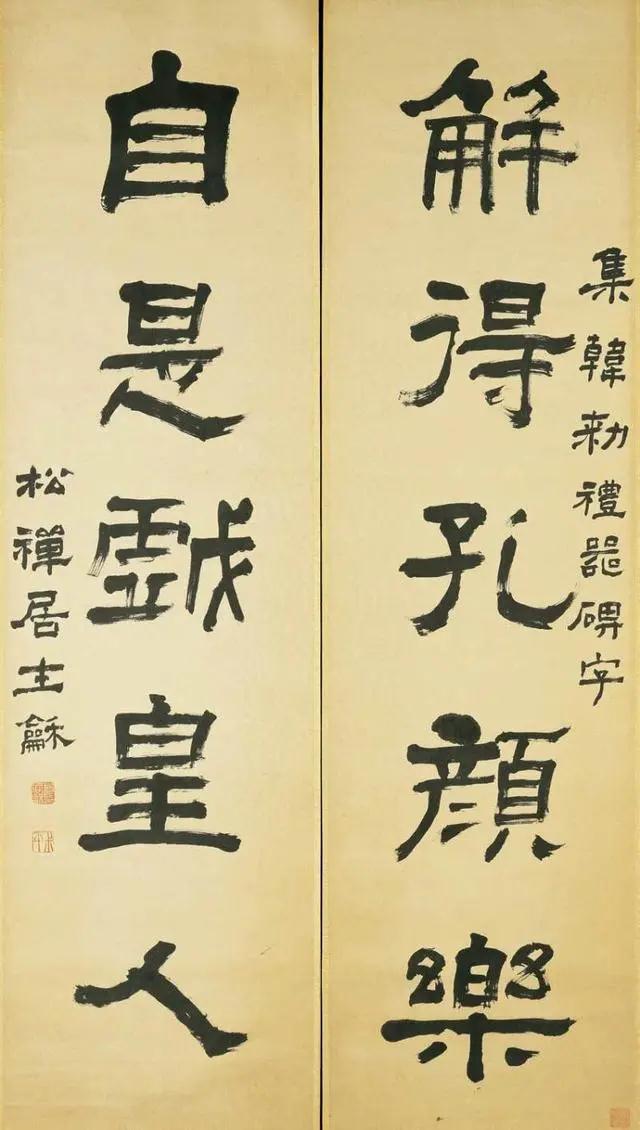 集韓勑禮器碑字
解得孔顏樂
自是戲皇人
松禪居士龢